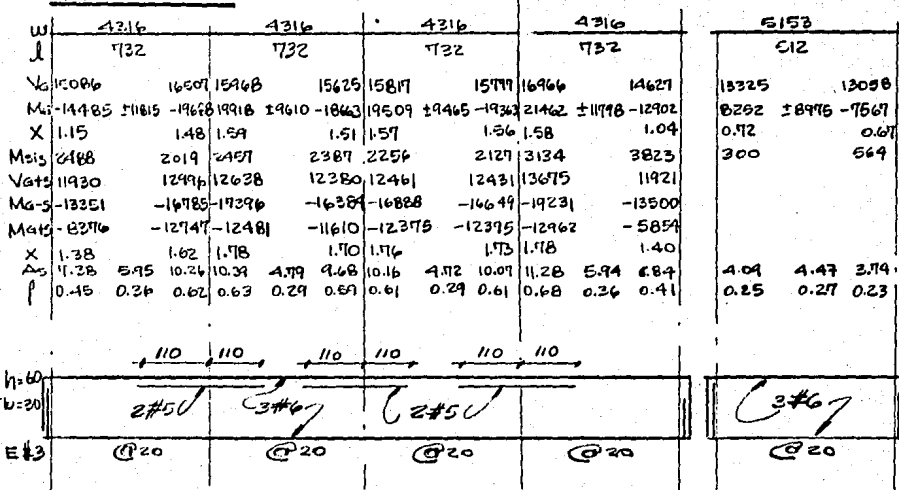 w 4316 4316 4316 4316 5153
l 732 732 732 732 512
15086 16507 15968 15625 15817 15777 16966 14627 13325 13058
-14485 ±11815 -19918 ±9610 -18663 19509 ±9465 -19363 21462 ±11798 -12902 8252 ±8975 -7567
X 1.15 1.48 1.59 1.51 1.57 1.56 1.58 1.04 0.72 0.67
Msis 2488 2019 2457 2387 2256 2127 3134 3823 300 564
Vats 11930 12996 12638 12380 12461 12431 13675 11921
MG-S -13351 -16785 -17396 -16384 -16888 -16649 -19231 -13500
Mats -8376 -12747 -12481 -11610 -12375 -12395 -12962 -5854
X 1.38 1.62 1.78 1.70 1.76 1.73 1.78 1.40
As 7.28 5.95 10.26 10.39 4.79 9.68 10.16 4.72 10.07 11.28 5.94 6.84 4.09 4.47 3.79
ρ 0.45 0.36 0.62 0.63 0.29 0.59 0.61 0.29 0.61 0.68 0.36 0.41 0.25 0.27 0.23
110 110 110 110 110 110
h=60
b=30 2#5 3#6 2#5 3#6
E#3 @20 @20 @20 @20 @20